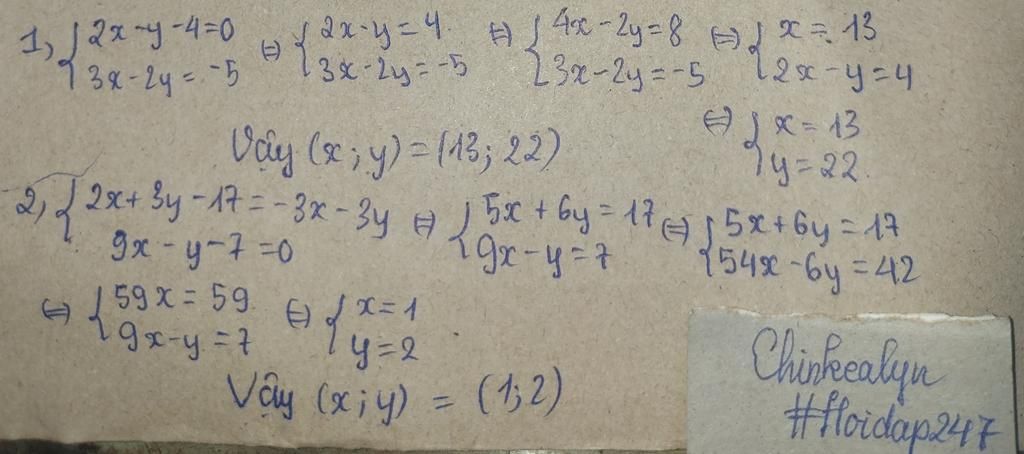 1, { 2x-y-4=0 ⇔ { 2x-y=4 ⇔ { 4x-2y=8 ⇔ { x=13
3x-2y=-5 3x-2y=-5 3x-2y=-5 2x-y=4
⇔ { x=13
y=22
Vậy (x;y)=(13;22)
2, { 2x+3y-17=-3x-3y ⇔ { 5x+6y=17 ⇔ { 5x+6y=17
9x-y-7=0 9x-y=7 54x-6y=42
⇔ { 59x=59 ⇔ { x=1
9x-y=7 y=2
Vậy (x;y) = (1;2)
Chinkealyn
#Hoidap247